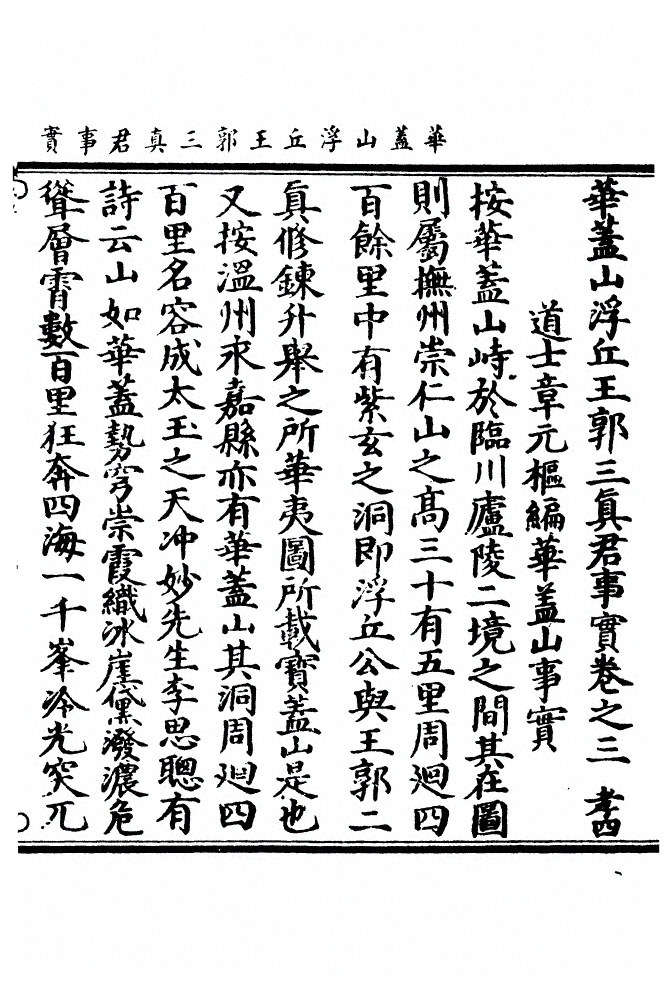 華蓋山浮丘王郭三真君事實
華蓋山浮丘王郭三真君事實卷之三　孝四
道士章元樞編華盖山事實
按華蓋山峙於臨川廬陵二境之間其在圖
則屬撫州崇仁山之高三十有五里周廻四
百餘里中有紫玄之洞即浮丘公與王郭二
真修鍊升舉之所華夷圖所載寶蓋山是也
又按溫州永嘉縣亦有華蓋山其洞周廻四
百里名容成太玉之天冲妙先生李思聰有
詩云山如華蓋勢穹崇霞織冰崖黛潑濃危
聳層霄數百里狂奔四海一千峯冷光突兀